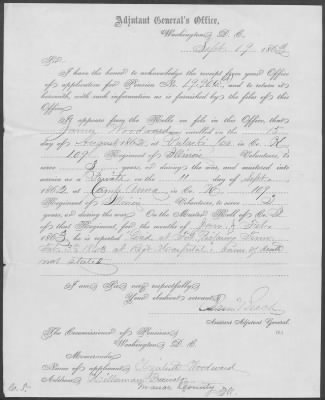 Adjutant General's Office,
Washington, D. C.
Sept. 19, 1863
Sir:
I have the honor to acknowledge the receipt from your Office
of application for Pension No. 19.262, and to return it
herewith, with such information as is furnished by the files of this
Office.
It appears from the Rolls on file in this Office, that
James Woodward was enrolled on the 15
day of August 1862, at Pulaski Co. in Co. K
109 Regiment of Illinois Volunteers, to
serve 3 years, or during the war, and mustered into
service as a Private on the 11 day of Sept.
1862, at Camp Anna in Co. K 109
Regiment of Illinois Volunteers, to serve 3
years, or during the war. On the Muster Roll of Co. K
of that Regiment, for the months of Jany. & Feby.
1863, he is reported
at Regt Hospital; cause of death
not stated
I am, Sir, very respectfully,
Your obedient servant,
Assistant Adjutant General.
The Commissioner of Pensions,
Washington, D. C.
Memoranda:
Name of applicant, Woodward
Address,
County